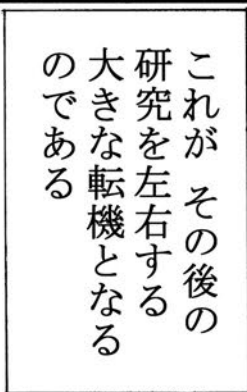 これが その後の
研究を左右する
大きな転機となる
のである